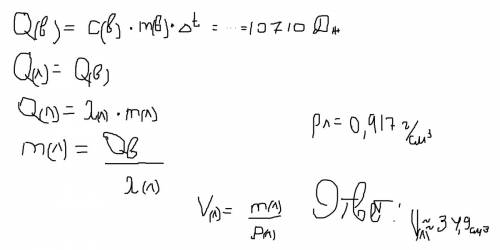 Q(в) = C(в) · m(в) · Δt = ... = 10710 Дж
Q(л) = Q(в)
Q(л) = λ(л) · m(л)
m(л) = Qв / λ(л)
ρл = 0,917 г/см³
V(л) = m(л) / ρ(л)
Ответ: Vл ≈ 34,9 см3